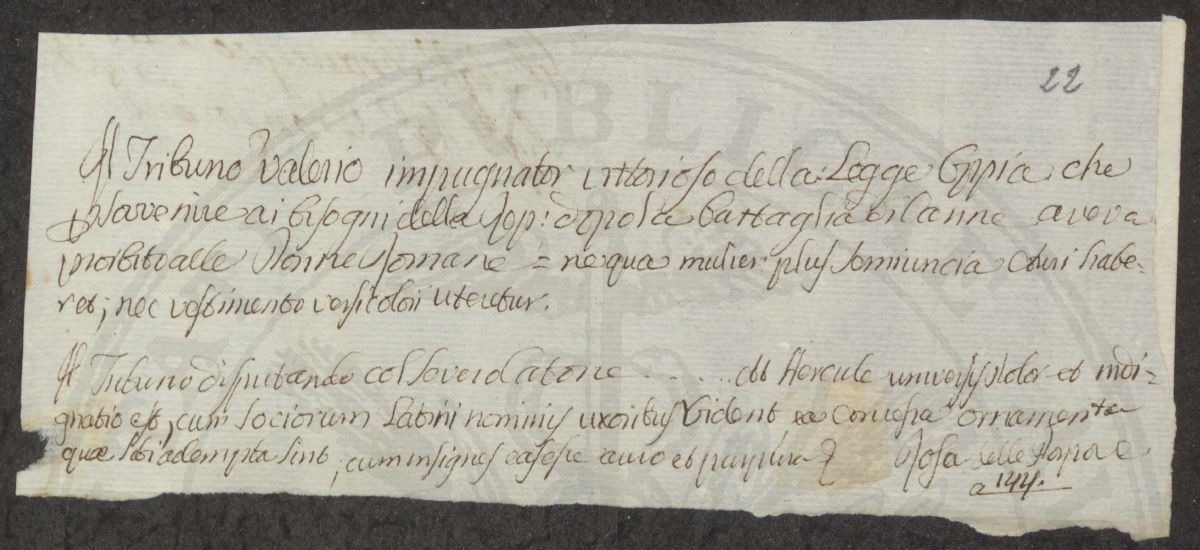 22
Il Tribuno Valerio impugnator vittorioso della Legge Oppia che
per sovvenire ai bisogni della Rep: dopo la battaglia di Canne aveva
proibito alle Donne Romane = ne qua mulier plus semiuncia auri habe=
ret; nec vestimento versicolori uteretur.
Il Tribuno disputando col severo Catone ...... At Hercule universis dolor et indi=
gnatio est, cum sociorum Latini nominis uxoribus vident ea concessa ornamenta
quae sibi adempta sint, cum insignes eas esse auro et purpura
a 144.